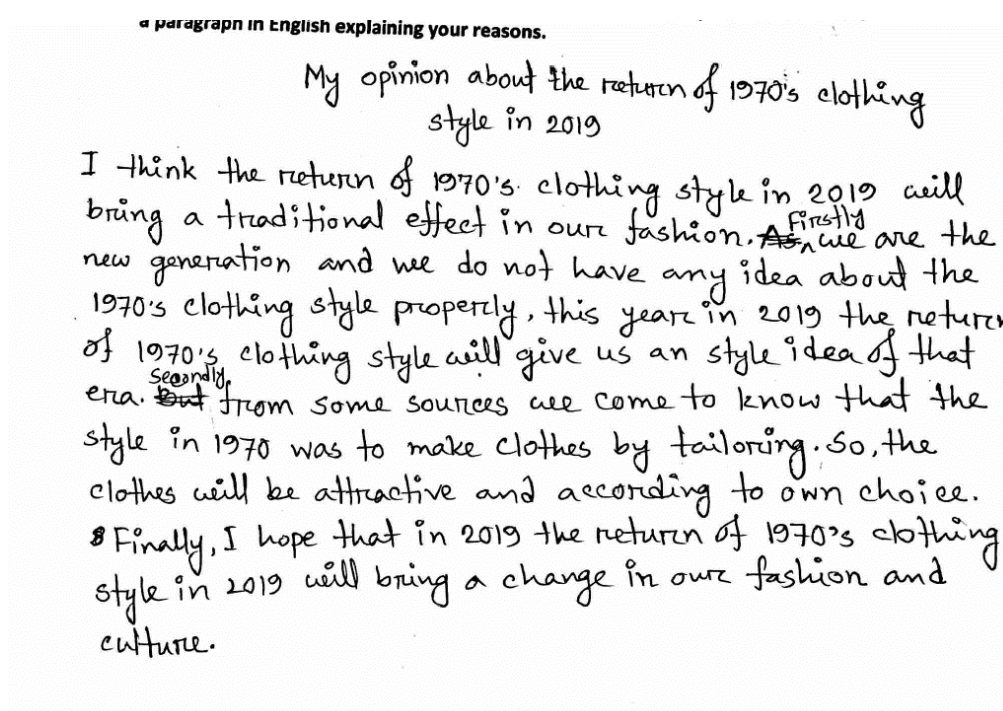 a paragraph in English explaining your reasons.
My opinion about the return of 1970's clothing
style in 2019
I think the return of 1970's clothing style in 2019 will
bring a traditional effect in our fashion. As Firstly, we are the
new generation and we do not have any idea about the
1970's clothing style properly, this year in 2019 the return
of 1970's clothing style will give us an style idea of that
era. But Secondly, from some sources we come to know that the
style in 1970 was to make clothes by tailoring. So, the
clothes will be attractive and according to own choice.
Finally, I hope that in 2019 the return of 1970's clothing
style in 2019 will bring a change in our fashion and
culture.